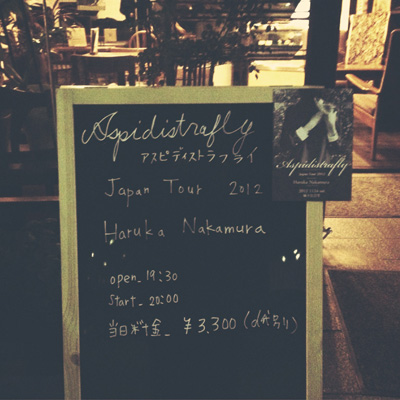 Aspidistrafly
アスピディストラフライ
Japan Tour 2012
Haruka Nakamura
open_ 19:30
Start_ 20:00
当日料金_ ¥3,300
Aspidistrafly
Japan Tour 2012
Haruka Nakamura